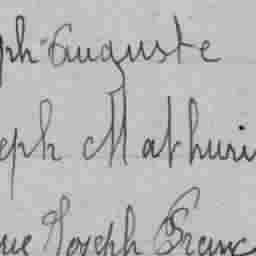 ph Auguste
eph Mathuri
ue Joseph Franc